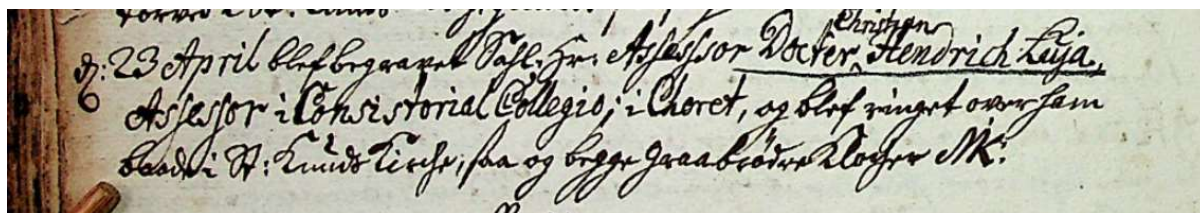 d: 23 April blef begravet Sahl: Hr: Assessor Docter Christian Hendrich Luja,
Assessor i Consistorial Collegio; i Choret, og blef ringet over ham
baade i St: Knuds Kirche, saa og begge Graabrødre Klocher NK: